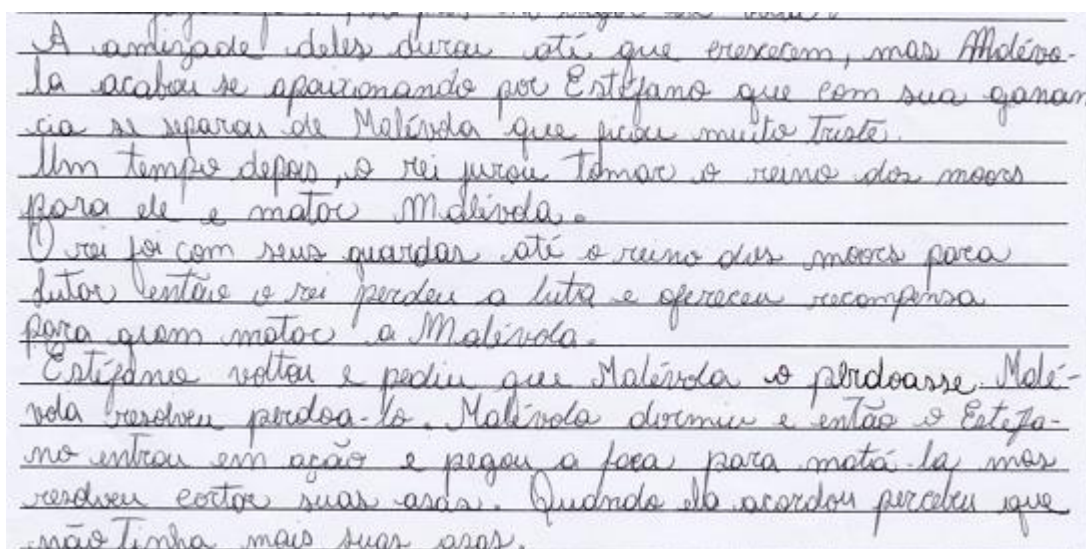 A amizade deles durou até que crescecem, mas Malévo-
la acabou se apaixonando por Estéfano que com sua ganan
cia se separou de Malévola que ficou muito triste.
Um tempo depois, o rei jurou tomar o reino dos moors
para ele e matar Malévola.
O rei foi com seus guardas até o reino dos moors para
lutar então o rei perdeu a luta e ofereceu recompensa
para quem matar a Malévola.
Estéfano voltou e pediu que Malévola o perdoasse. Malé-
vola resolveu perdoa-lo. Malévola dormiu e então o Estefa-
no entrou em ação e pegou a faca para matá-la mas
resolveu cortar suas asas. Quando ela acordou percebeu que
não tinha mais suas asas.